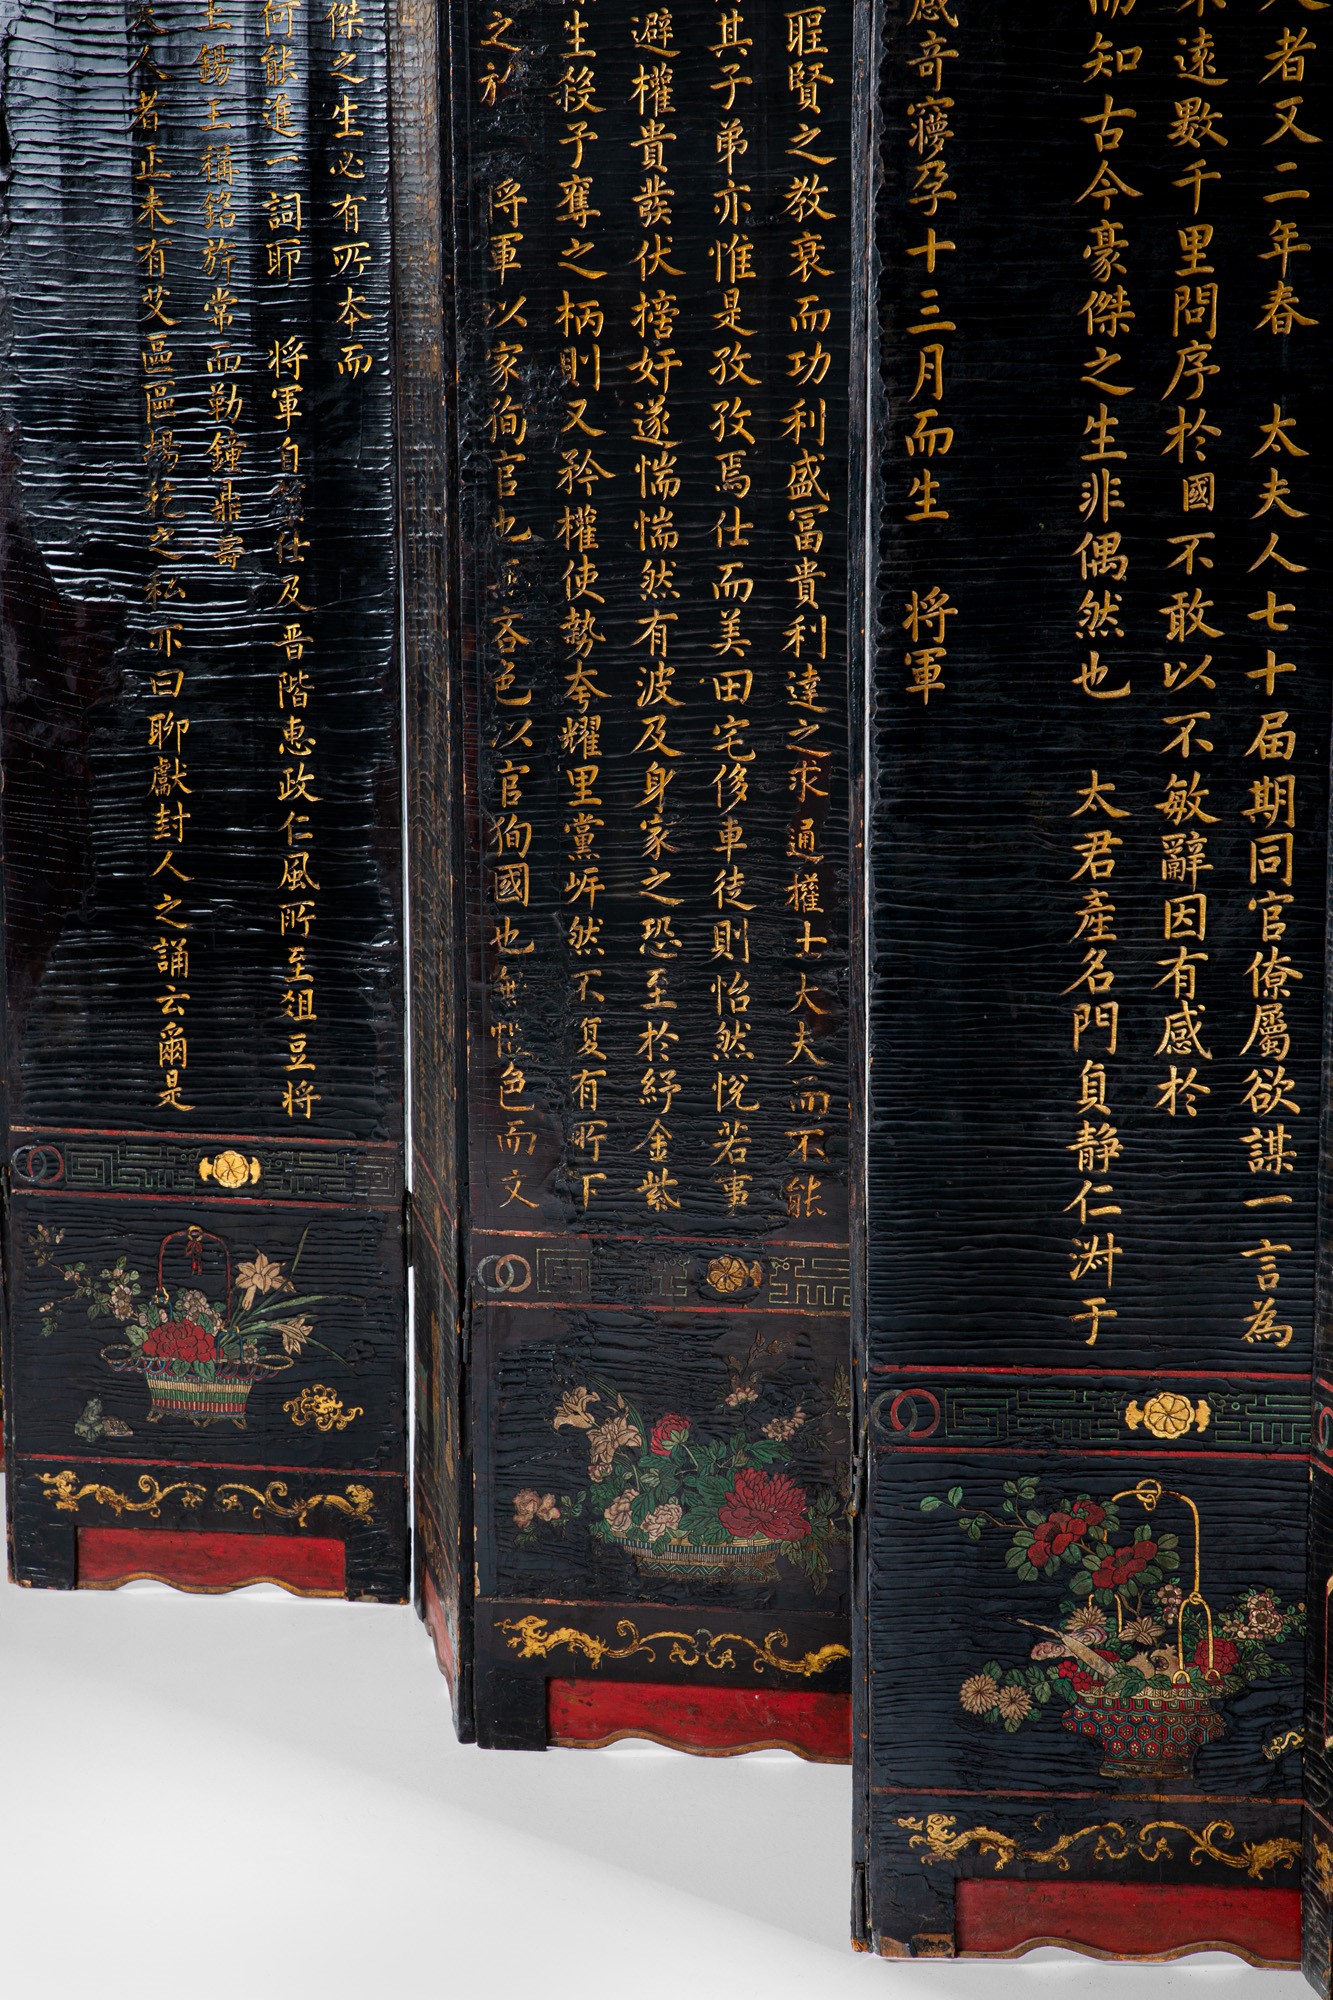 者又二年春 太夫人七十届期同官僚屬欲謀一言為
遠數千里問序於國不敢以不敏辭因有感於
而知古今豪傑之生非偶然也 太君產名門負静仁淑于
感奇瘮孕十三月而生 将軍
賢之教衰而功利盛冨貴利達之求通權士大夫而不能
其子弟亦惟是孜孜焉仕而美田宅侈車徒則怡然悅若事
避權貴蕟伏搒奸遂惴惴然有波及身家之恐至於紆金紫
生殺予奪之柄則又矜權使勢夸耀里黨岸然不复有所下
之於 将軍以家狥官也無吝色以官狥國也無怪色而文
傑之生必有所本而
何能進一詞耶 将軍自筮仕及晋階惠政仁風所至俎豆将
土錫王稱銘於常而勒鐘鼎壽
夫人者正未有艾區區場乾之私亦曰聊獻封人之誦云爾是